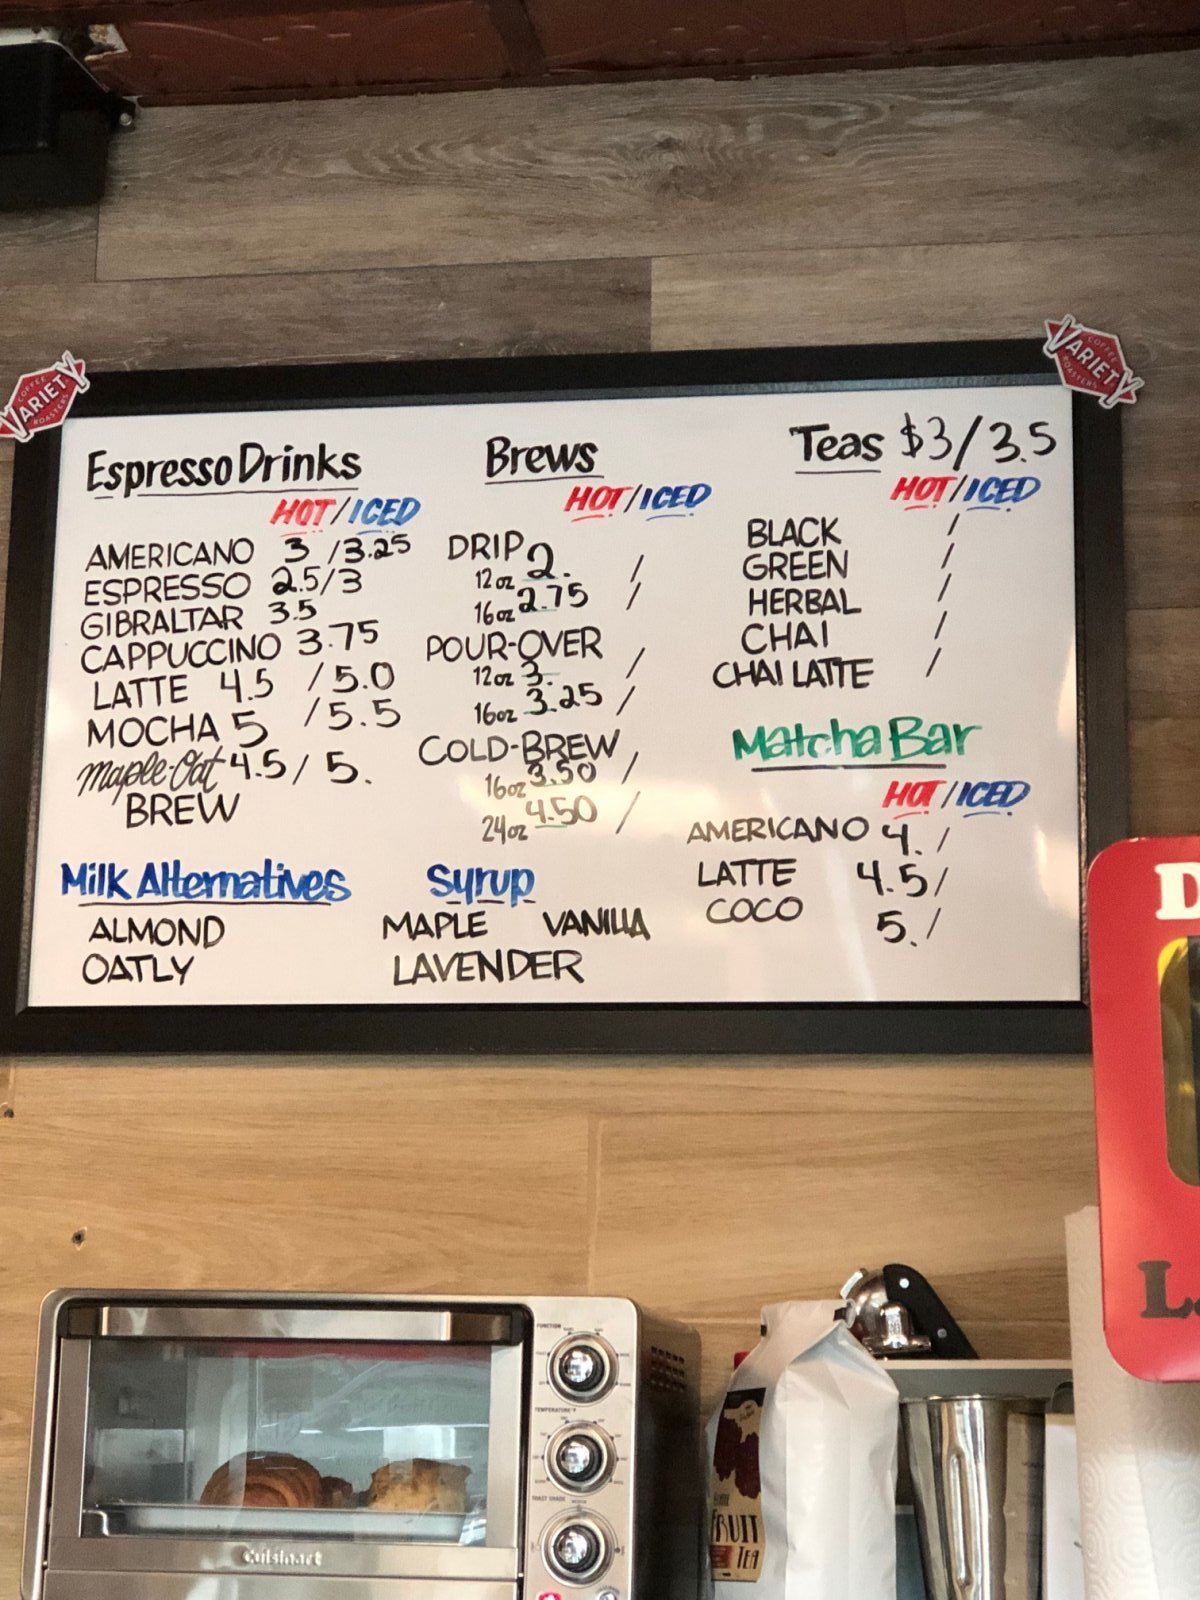 COFFEE
VARIETY
ROASTERS
COFFEE
VARIETY
ROASTERS
Espresso Drinks
HOT/ICED
AMERICANO 3 /3.25
ESPRESSO 2.5/3
GIBRALTAR 3.5
CAPPUCCINO 3.75
LATTE 4.5 /5.0
MOCHA 5 /5.5
Maple-Oat 4.5/ 5.
BREW
Brews
HOT/ICED
DRIP
12oz 2. /
16oz 2.75 /
POUR-OVER
12oz 3. /
16oz 3.25 /
COLD-BREW
16oz 3.50 /
24oz 4.50 /
Teas $3/3.5
HOT/ICED
BLACK /
GREEN /
HERBAL /
CHAI /
CHAI LATTE /
Matcha Bar
HOT/ICED
AMERICANO 4. /
LATTE 4.5/
COCO 5. /
Milk Alternatives
ALMOND
OATLY
Syrup
MAPLE VANILLA
LAVENDER
D
L
FUNCTION
TEMPERATURE°F
TOAST SHADE
Cuisinart
FRUIT
TEA